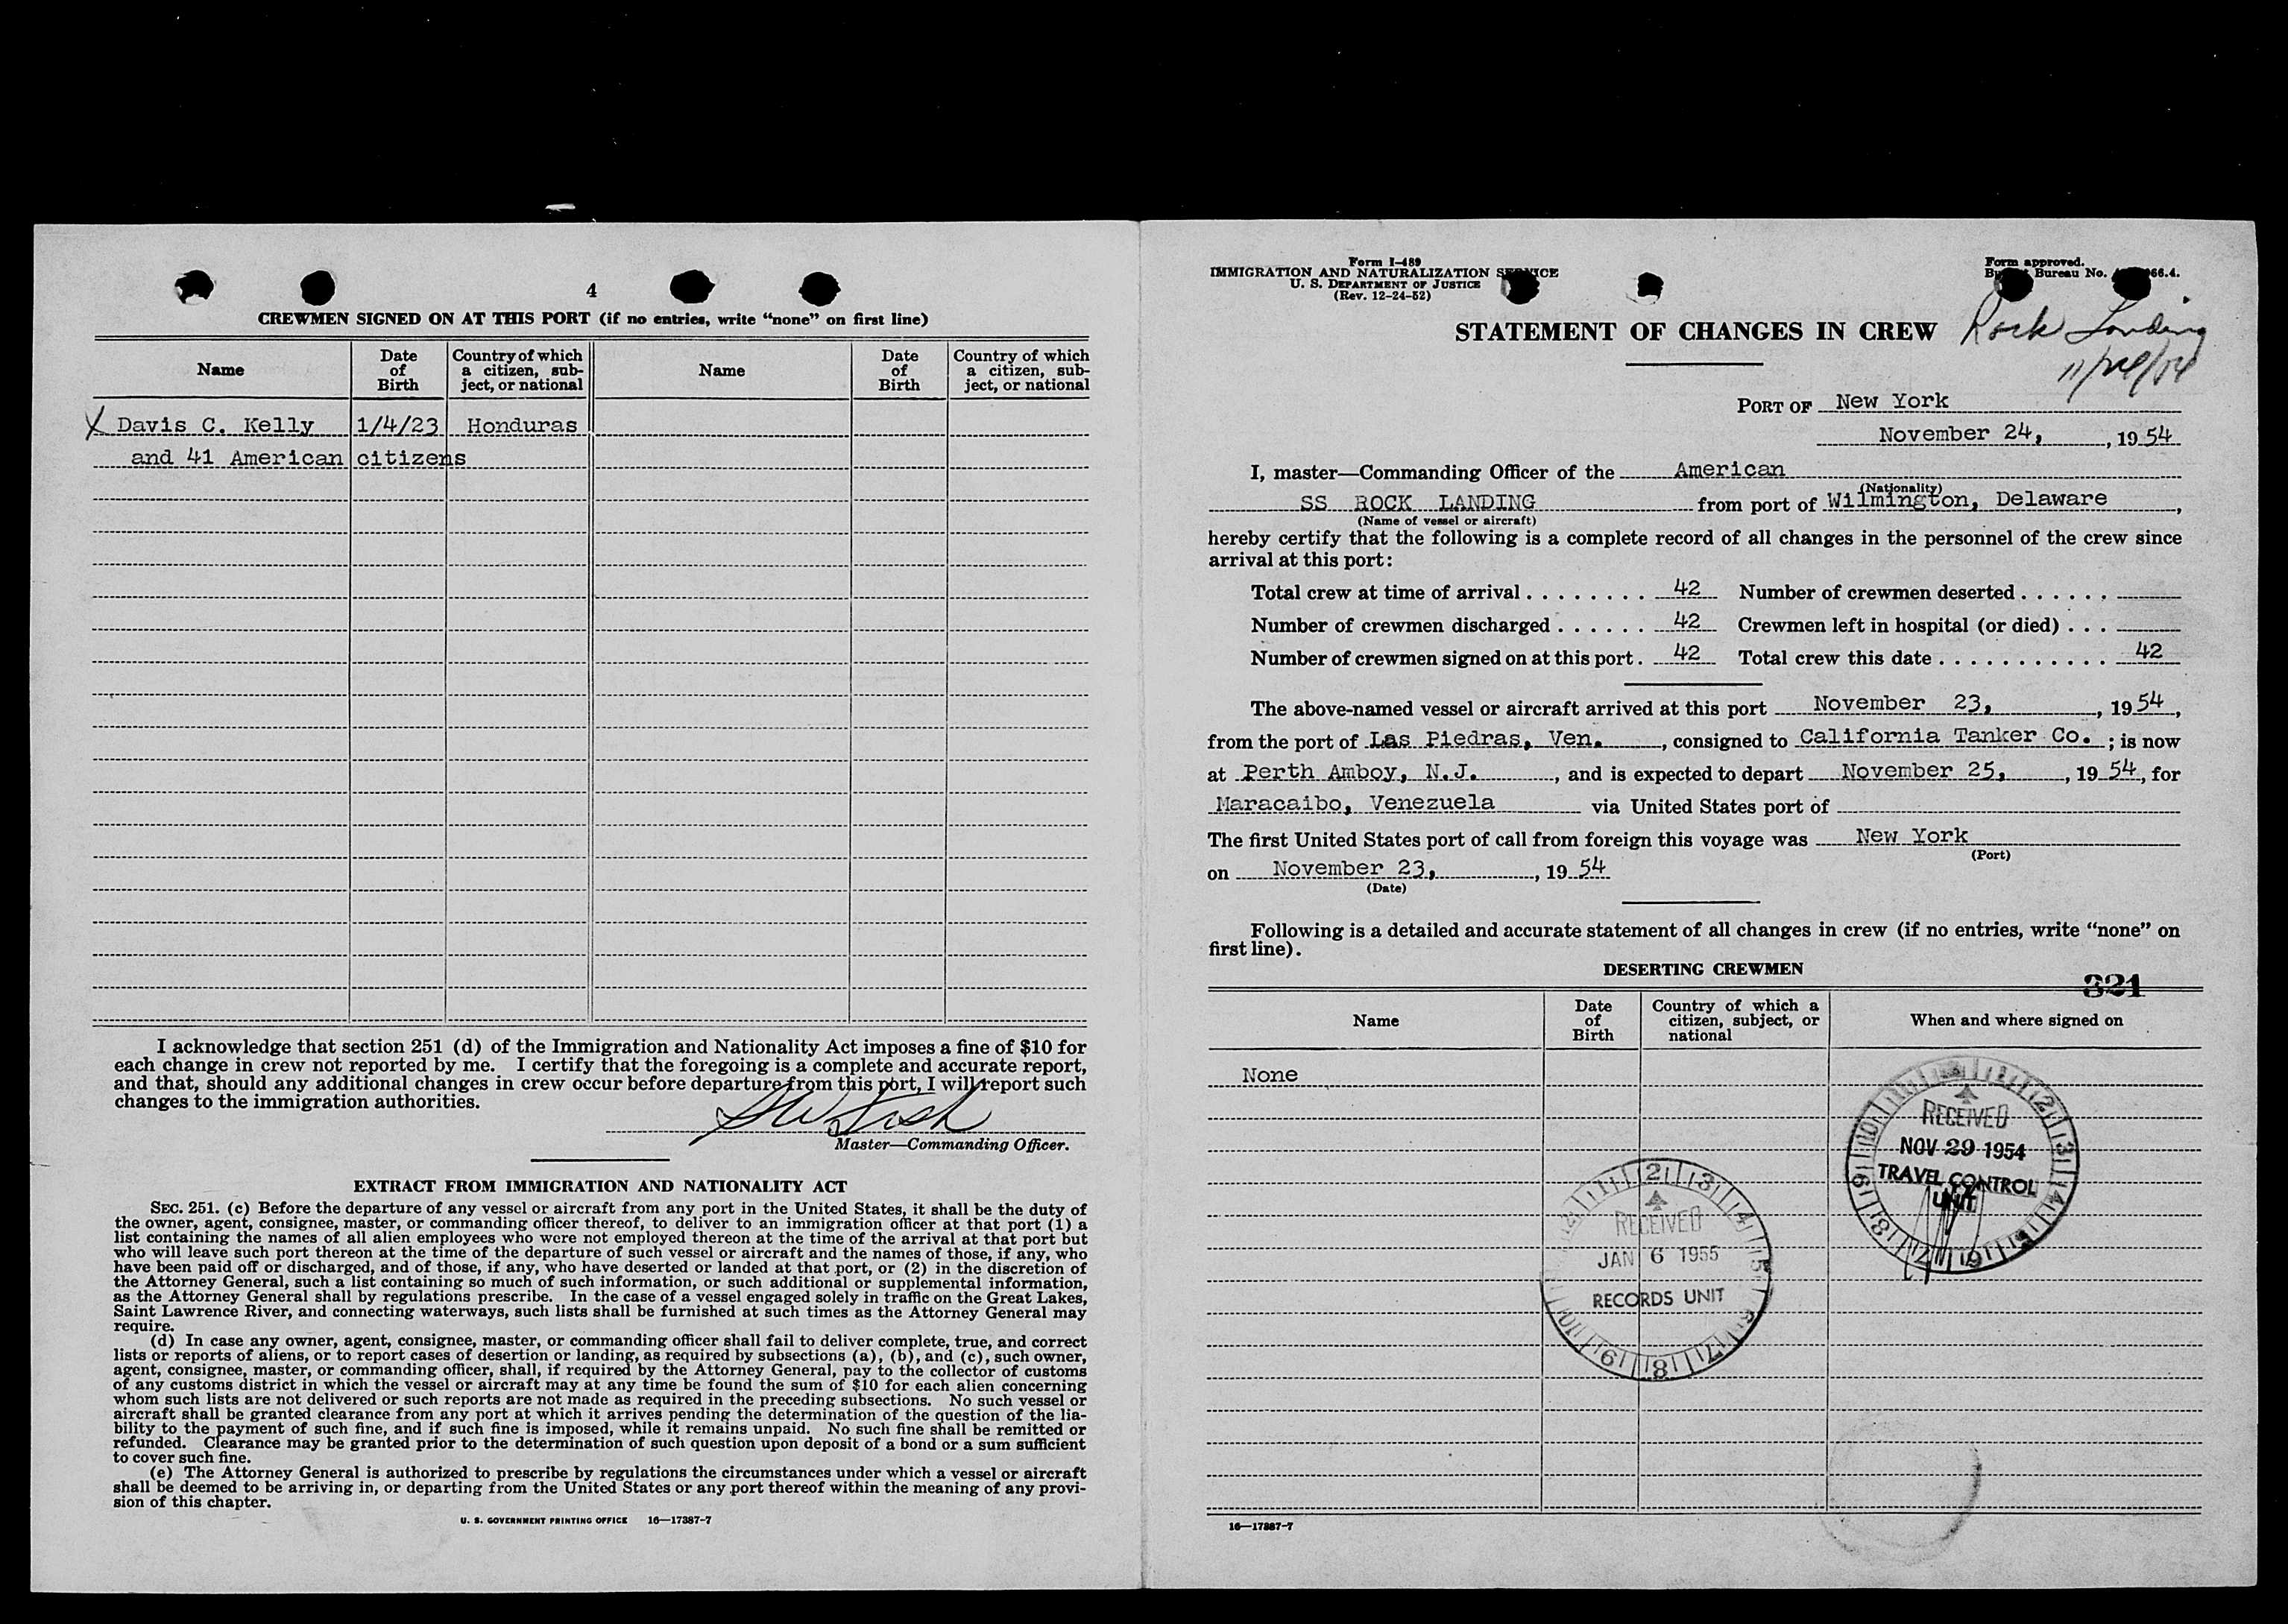 4
CREWMEN SIGNED ON AT THIS PORT (if no entries, write "none" on first line)
Name
Date of Birth
Country of which a citizen, subject, or national
Name
Date of Birth
Country of which a citizen, subject, or national
X Davis C. Kelly 1/4/23 Honduras
and 41 American citizens
I acknowledge that section 251 (d) of the Immigration and Nationality Act imposes a fine of $10 for
each change in crew not reported by me. I certify that the foregoing is a complete and accurate report,
and that, should any additional changes in crew occur before departure from this port, I will report such
changes to the immigration authorities.
Master—Commanding Officer.
EXTRACT FROM IMMIGRATION AND NATIONALITY ACT
SEC. 251. (c) Before the departure of any vessel or aircraft from any port in the United States, it shall be the duty of
the owner, agent, consignee, master, or commanding officer thereof, to deliver to an immigration officer at that port (1) a
list containing the names of all alien employees who were not employed thereon at the time of the arrival at that port but
who will leave such port thereon at the time of the departure of such vessel or aircraft and the names of those, if any, who
have been paid off or discharged, and of those, if any, who have deserted or landed at that port, or (2) in the discretion of
the Attorney General, such a list containing so much of such information, or such additional or supplemental information,
as the Attorney General shall by regulations prescribe. In the case of a vessel engaged solely in traffic on the Great Lakes,
Saint Lawrence River, and connecting waterways, such lists shall be furnished at such times as the Attorney General may
require.
(d) In case any owner, agent, consignee, master, or commanding officer shall fail to deliver complete, true, and correct
lists or reports of aliens, or to report cases of desertion or landing, as required by subsections (a), (b), and (c), such owner,
agent, consignee, master, or commanding officer, shall, if required by the Attorney General, pay to the collector of customs
of any customs district in which the vessel or aircraft may at any time be found the sum of $10 for each alien concerning
whom such lists are not delivered or such reports are not made as required in the preceding subsections. No such vessel or
aircraft shall be granted clearance from any port at which it arrives pending the determination of the question of the lia-
bility to the payment of such fine, and if such fine is imposed, while it remains unpaid. No such fine shall be remitted or
refunded. Clearance may be granted prior to the determination of such question upon deposit of a bond or a sum sufficient
to cover such fine.
(e) The Attorney General is authorized to prescribe by regulations the circumstances under which a vessel or aircraft
shall be deemed to be arriving in, or departing from the United States or any port thereof within the meaning of any provi-
sion of this chapter.
U. S. GOVERNMENT PRINTING OFFICE 16—17387-7
Form I-489
IMMIGRATION AND NATURALIZATION SERVICE
U. S. DEPARTMENT OF JUSTICE
(Rev. 12-24-52)
Form approved.
Bureau No. 66.4.
STATEMENT OF CHANGES IN CREW
Rock Landing
PORT OF New York
November 24, , 19 54
I, master—Commanding Officer of the American
(Nationality)
SS ROCK LANDING from port of Wilmington, Delaware ,
(Name of vessel or aircraft)
hereby certify that the following is a complete record of all changes in the personnel of the crew since
arrival at this port:
Total crew at time of arrival . . . . . . . . 42 Number of crewmen deserted . . . . . .
Number of crewmen discharged . . . . . . 42 Crewmen left in hospital (or died) . . .
Number of crewmen signed on at this port . 42 Total crew this date . . . . . . . . . . . 42
The above-named vessel or aircraft arrived at this port November 23, , 19 54 ,
from the port of Las Piedras, Ven. , consigned to California Tanker Co. ; is now
at Perth Amboy, N.J. , and is expected to depart November 25, , 19 54, for
Maracaibo, Venezuela via United States port of
The first United States port of call from foreign this voyage was New York
(Port)
on November 23, , 19 54
(Date)
Following is a detailed and accurate statement of all changes in crew (if no entries, write "none" on
first line).
DESERTING CREWMEN
321
Name
Date of Birth
Country of which a citizen, subject, or national
When and where signed on
None
RECEIVED
NOV 29 1954
TRAVEL CONTROL
UNIT
RECEIVED
JAN 6 1955
RECORDS UNIT
16—17387-7